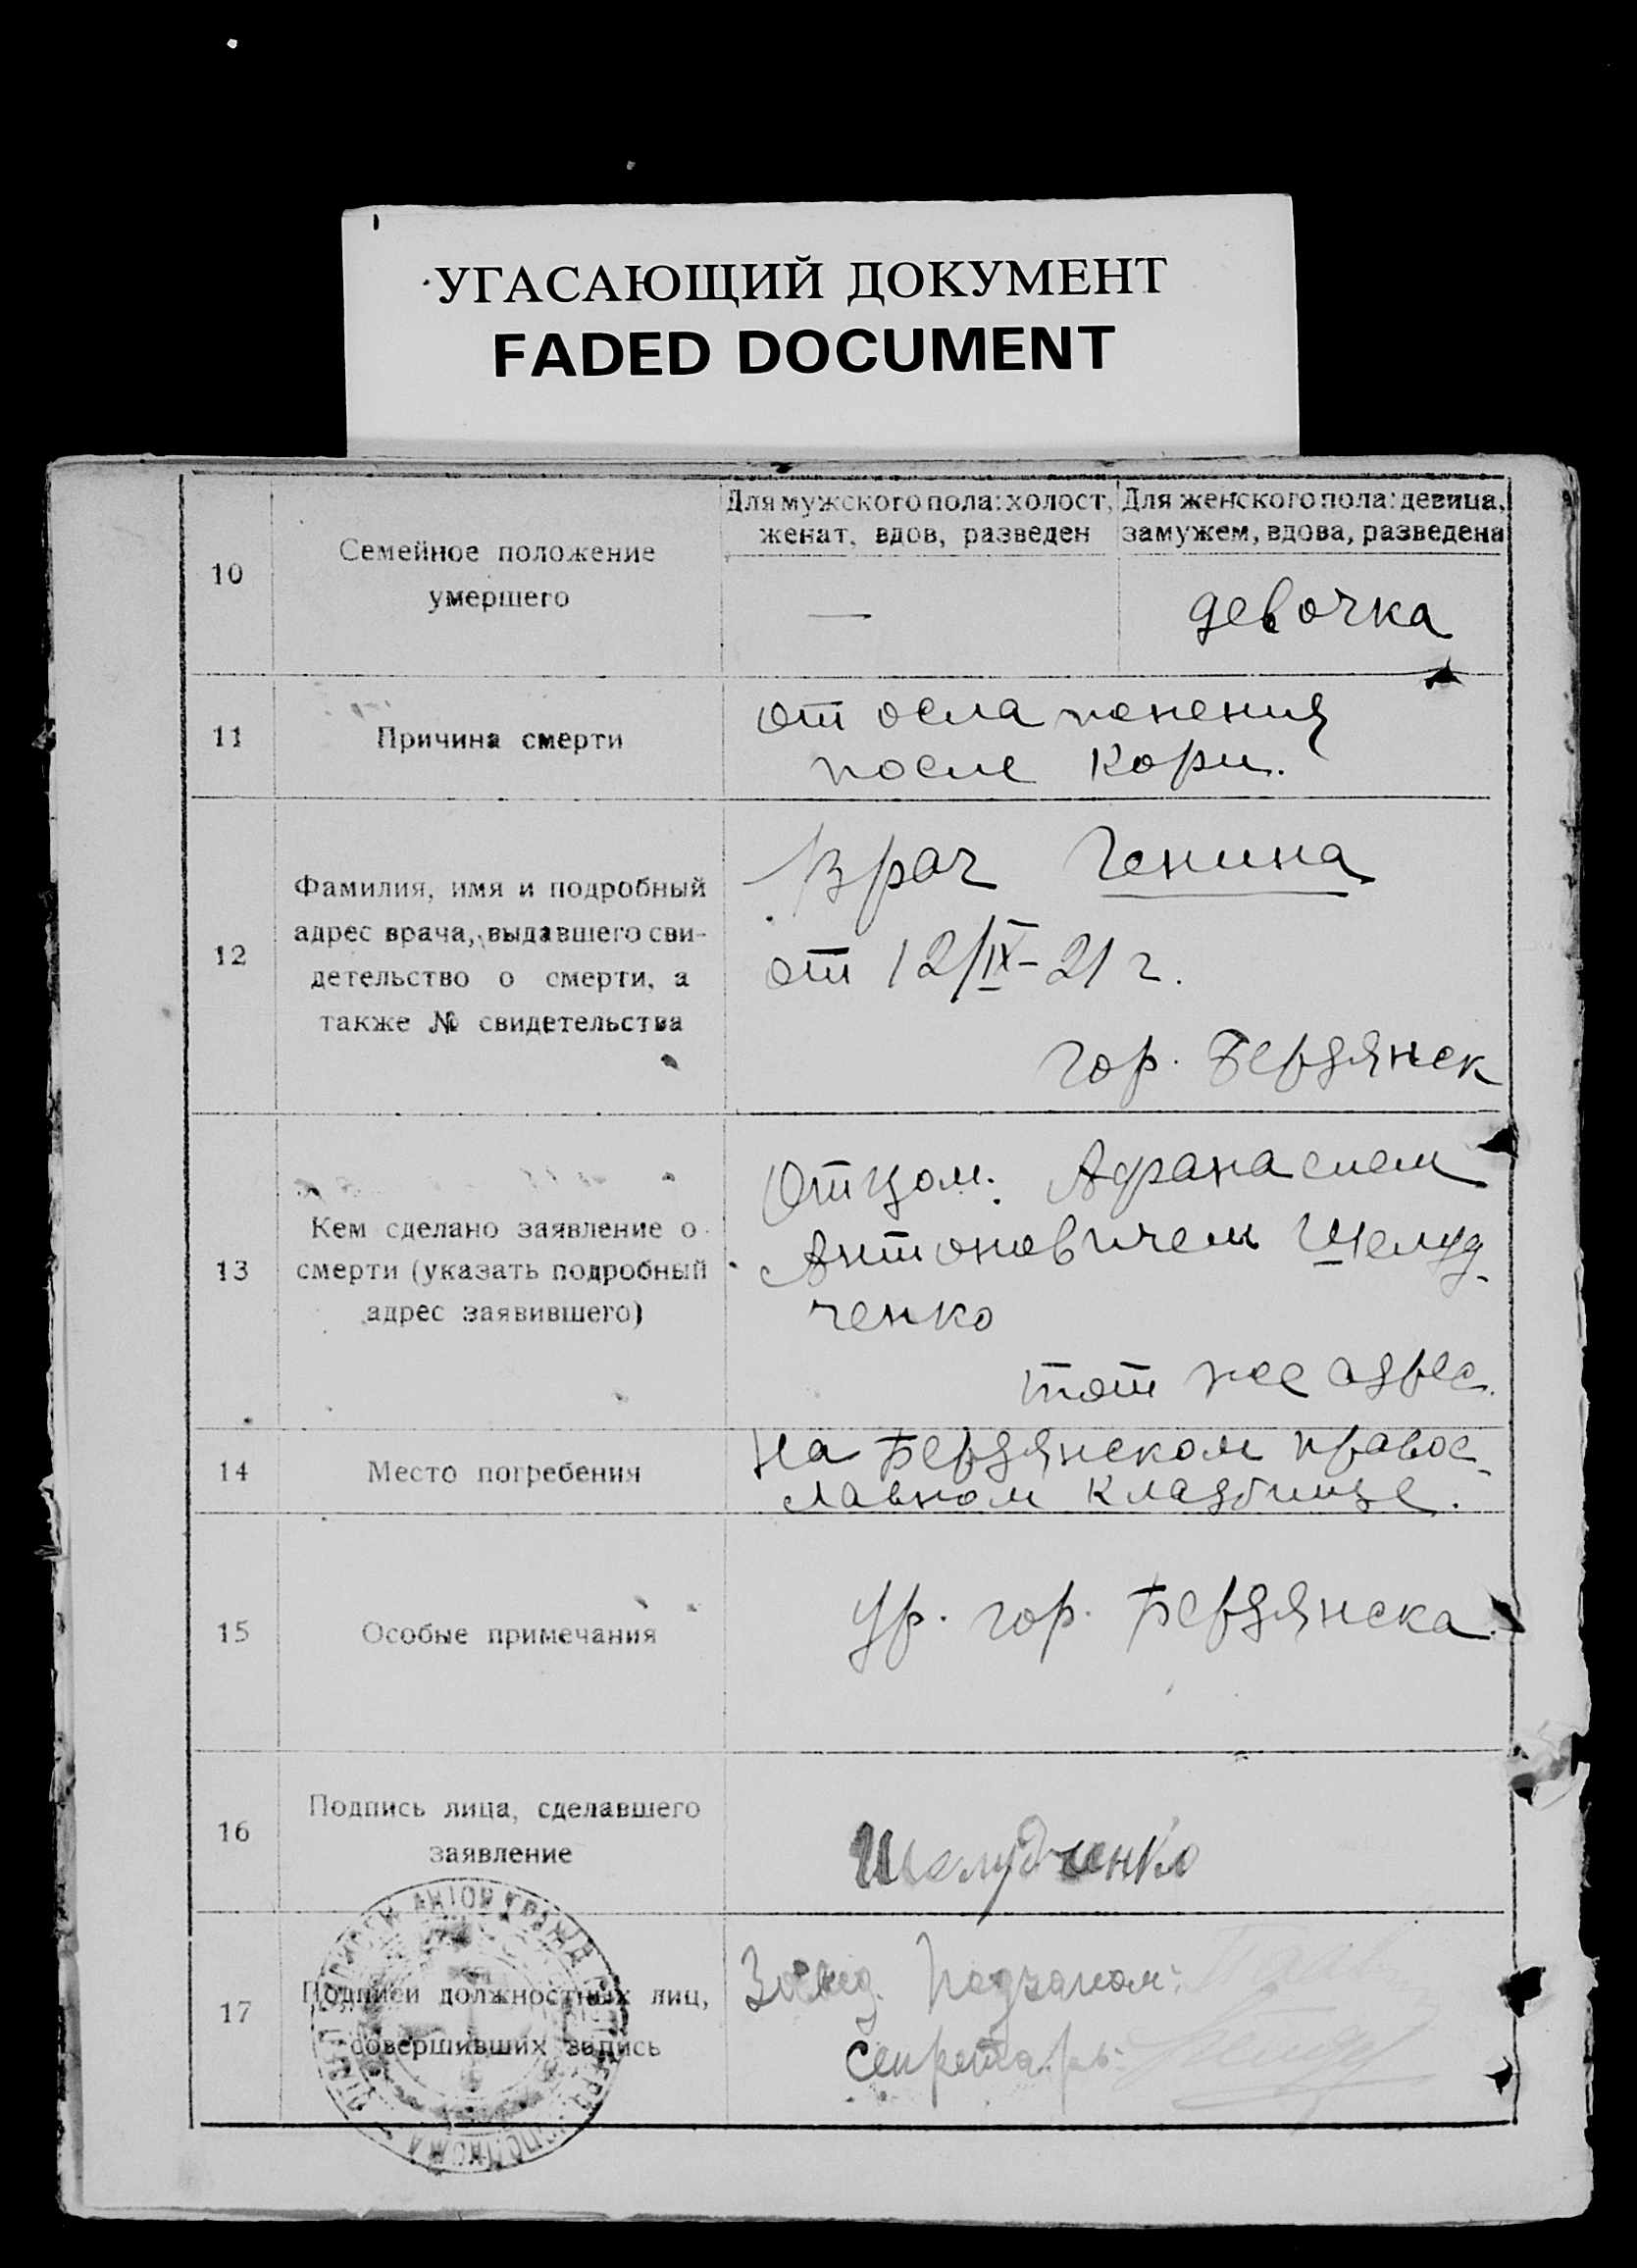 УГАСАЮЩИЙ ДОКУМЕНТ
FADED DOCUMENT
10
Семейное положение
умершего
Для мужского пола: холост,
женат, вдов, разведен
—
Для женского пола: девица,
замужем, вдова, разведена
девочка
11
Причина смерти
от ослапнения
после кори.
12
Фамилия, имя и подробный
адрес врача, выдавшего сви-
детельство о смерти, а
также № свидетельства
Врач Генина
от 12/IX-21 г.
гор. Бердянск
13
Кем сделано заявление о
смерти (указать подробный
адрес заявившего)
Отцом: Афанасием
Антоновичем Шелуд-
ченко
тот же адрес.
14
Место погребения
На Бердянском правос-
лавном кладбище.
15
Особые примечания
Ур. гор. Бердянска.
16
Подпись лица, сделавшего
заявление
Шелудченко
17
Подписи должностных лиц,
совершивших запись
Завед. Подзагсом:
Секретарь: